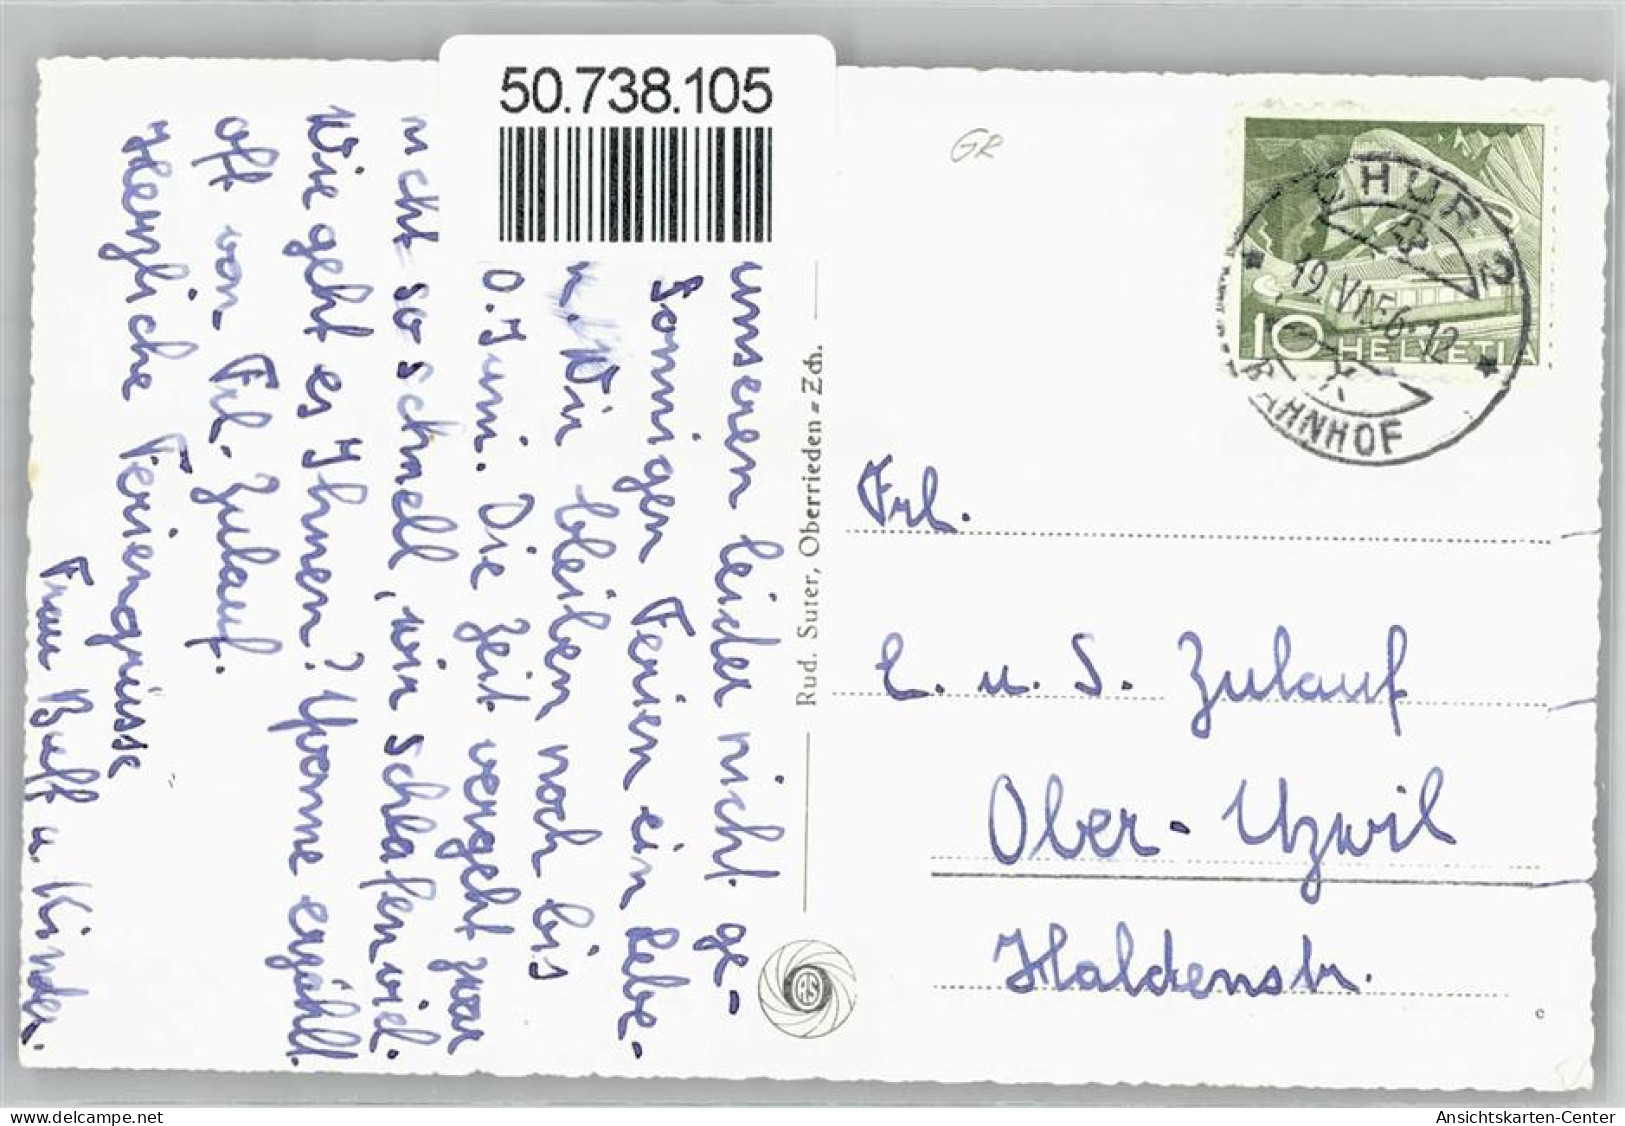 50.738.105
GR
CHUR 2
19.VI.56-12
BAHNHOF
10 HELVETIA
unseren leider nicht ge-
Sonnigen Ferien ein Lebe-
n. Wir bleiben noch bis
0. Juni. Die Zeit vergeht zwar
nicht so schnell, wir schlafen viel.
Wie geht es Ihnen? Yvonne erzählt
oft von Frl. Zulauf.
Herzliche Feriengrüsse
Frau Buff u. Kinder.
Rud. Suter, Oberrieden-Zch.
RS
Frl.
E. u. S. Zulauf
Ober-Uzwil
Haldenstr.
c
Ansichtskarten-Center